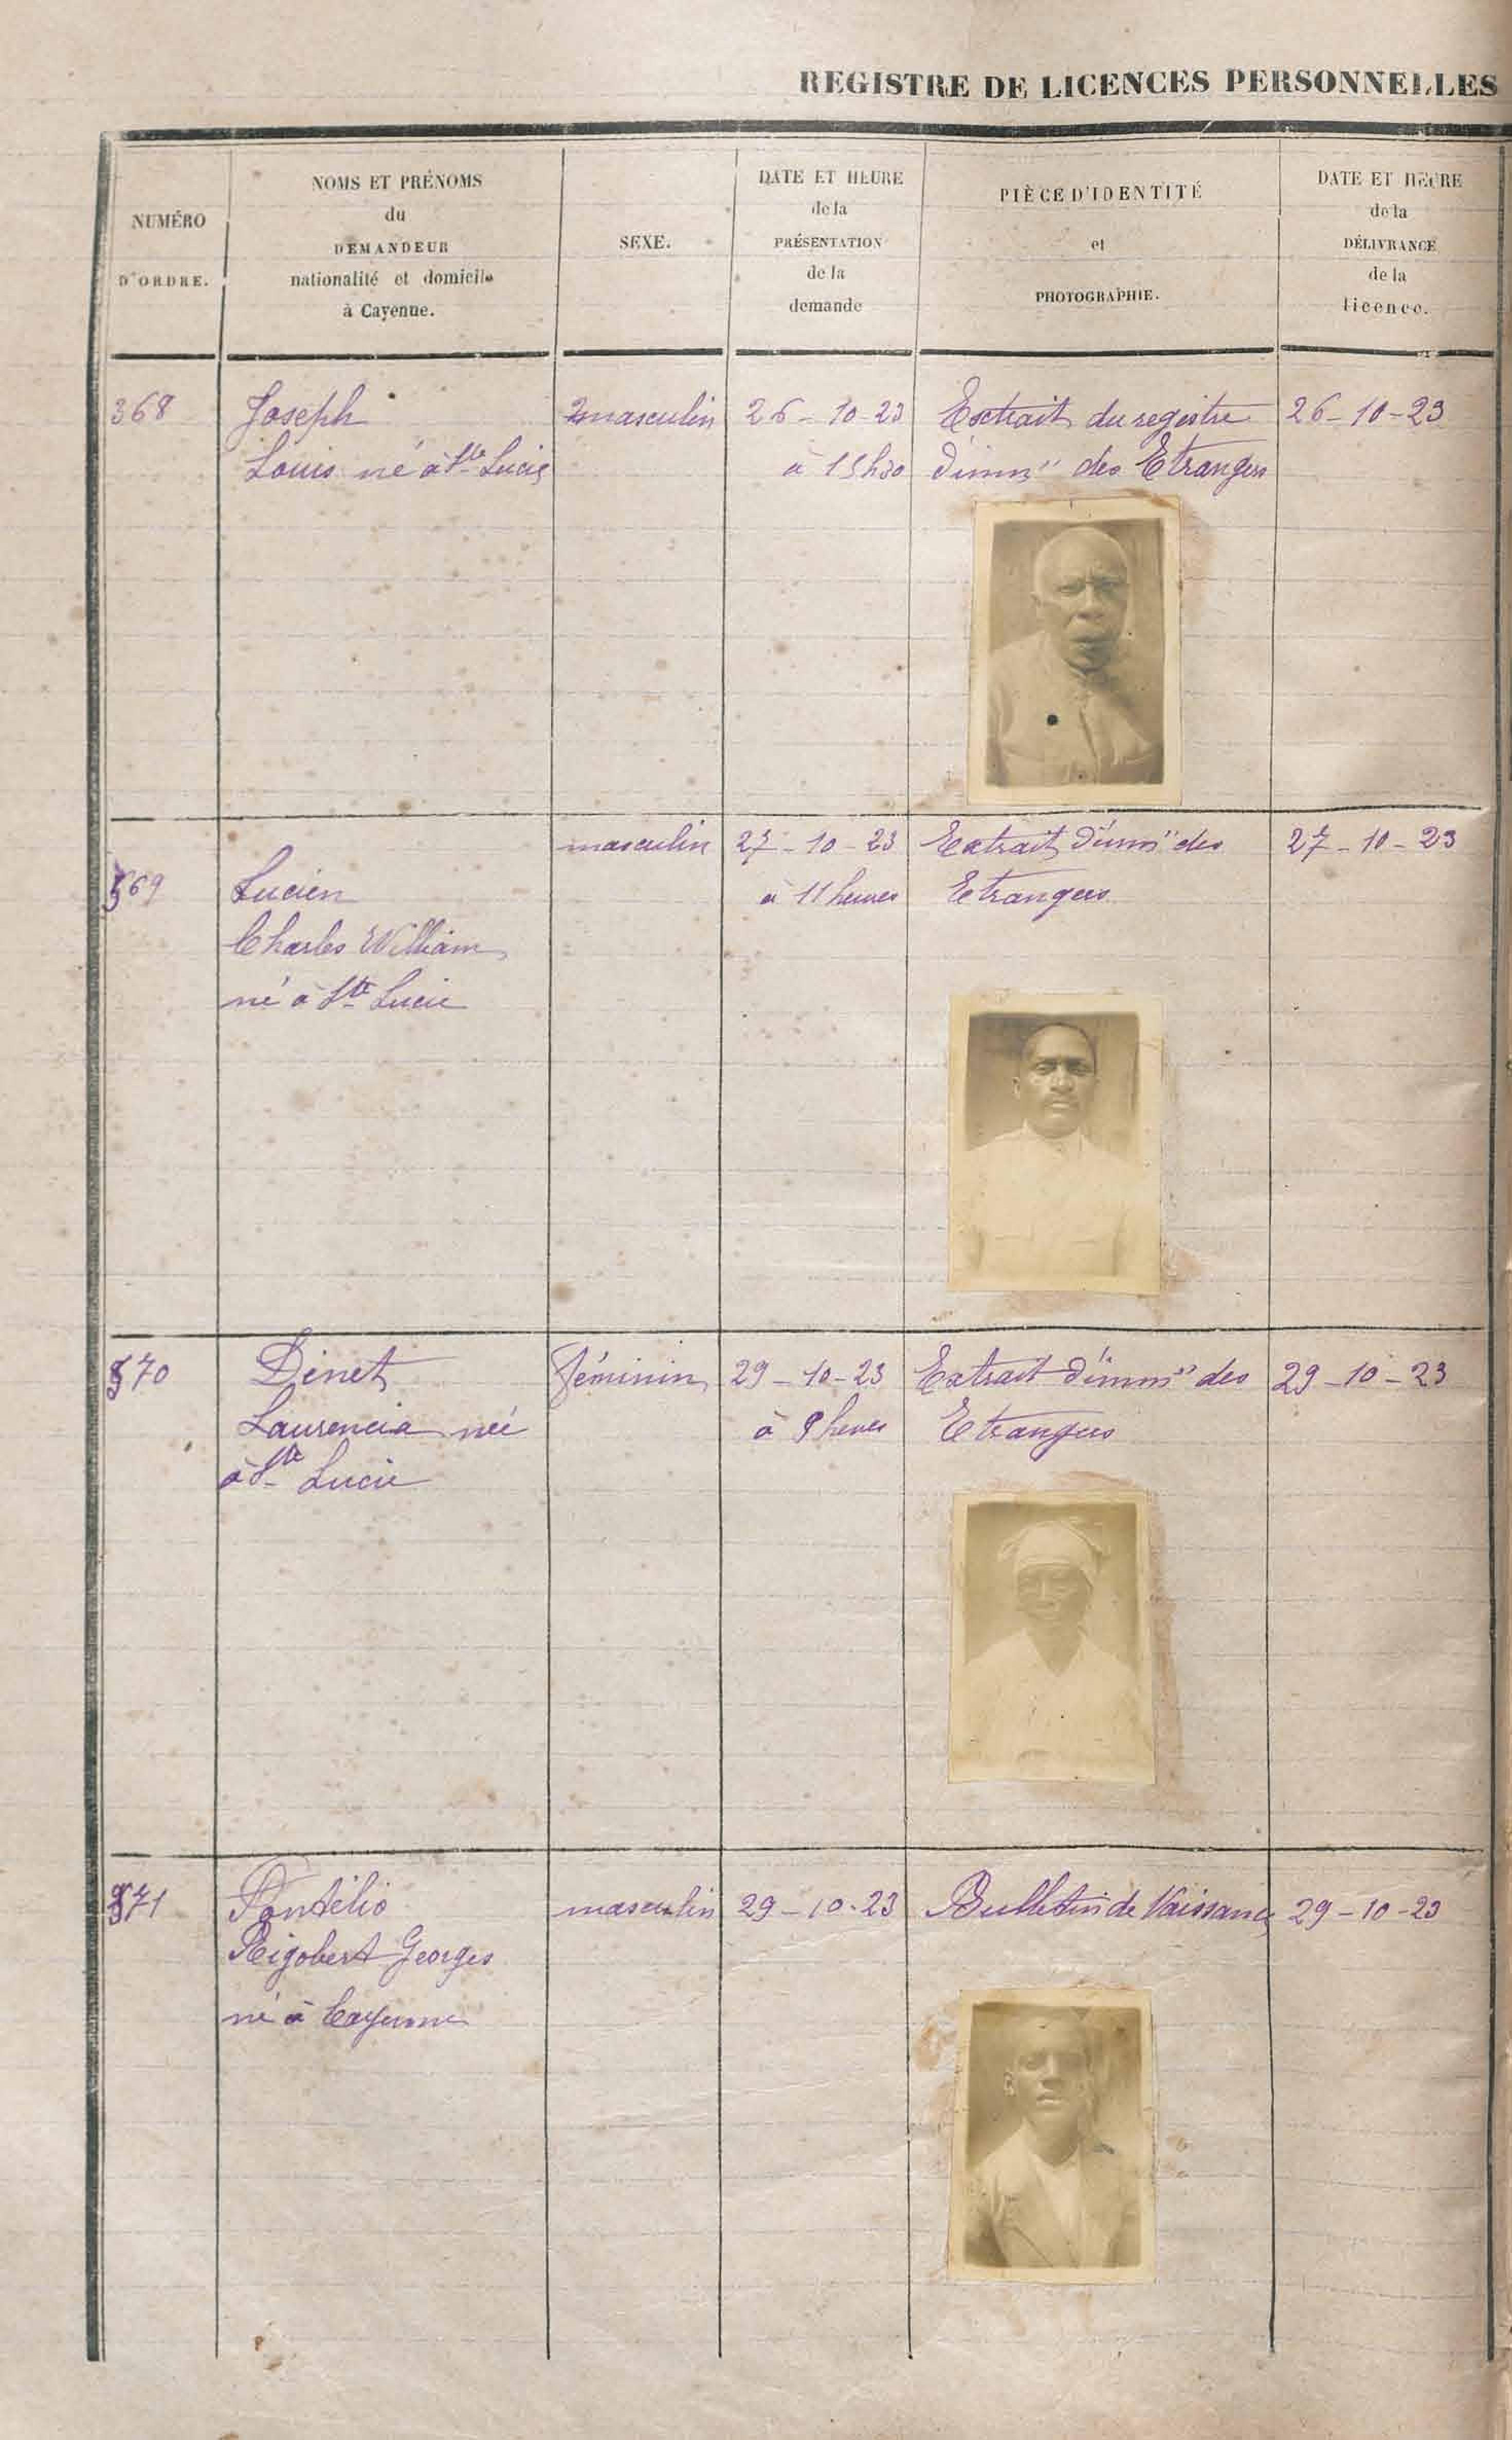 REGISTRE DE LICENCES PERSONNELLES
NUMÉRO
D'ORDRE.
NOMS ET PRÉNOMS
du
DEMANDEUR
nationalité et domicile
à Cayenne.
SEXE.
DATE ET HEURE
de la
PRÉSENTATION
de la
demande
PIÈCE D'IDENTITÉ
et
PHOTOGRAPHIE.
DATE ET HEURE
de la
DÉLIVRANCE
de la
licence.
368
Joseph
Louis né à Ste Lucie
masculin
26-10-23
à 15h30
Extrait du registre
d'imm" des Etrangers
26-10-23
369
Lucien
Charles William
né à Ste Lucie
masculin
27-10-23
à 11 heures
Extrait d'imm" des
Etrangers
27-10-23
370
Dinet
Laurencia née
à Ste Lucie
féminin
29-10-23
à 9 heures
Extrait d'imm" des
Etrangers
29-10-23
371
Pontélio
Rigobert Georges
né à Cayenne
masculin
29-10-23
Bulletin de Naissance
29-10-23